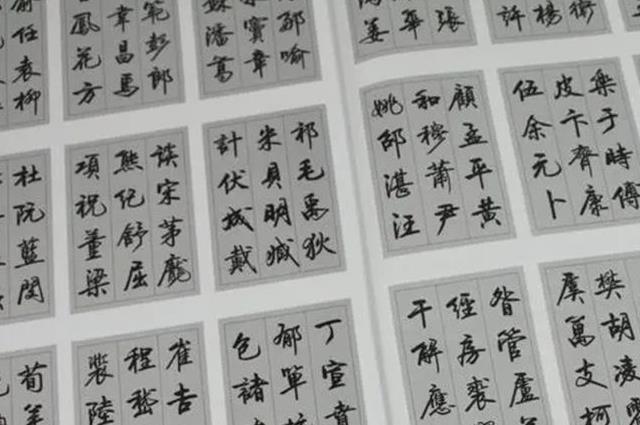 衛
楊
許
張
華
姜
鄒喻
竇章
潘葛
範彭郎
韋昌馬
鳳花方
俞任袁柳
樂于時傅
皮卞齊康
伍余元卜
顧孟平黃
和穆蕭尹
姚邵湛汪
祁毛禹狄
米貝明臧
計伏成戴
談宋茅龐
熊紀舒屈
項祝董梁
杜阮藍閔
樊胡凌霍
虞萬支柯
昝管盧
經房裘
干解應
丁宣賁
郁單杭
包諸
崔吉
程嵇
裴陸
荀羊